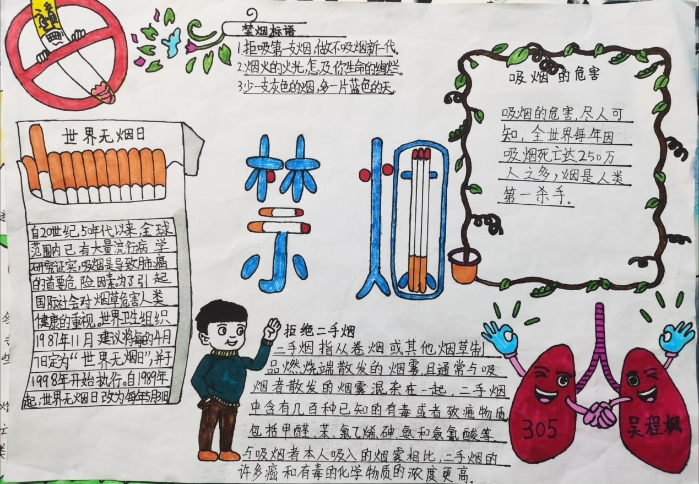 禁烟标语
1.拒吸第一支烟,做不吸烟新一代。
2.烟火的火光,怎及你生命的绚烂。
3.少一支灰色的烟,多一片蓝色的天。
吸烟的危害
吸烟的危害,尽人可
知,全世界每年因
吸烟死亡达250万
人之多,烟是人类
第一杀手。
世界无烟日
自20世纪,50年代以来,全球
范围内已有大量流行病学
研究证实,吸烟是导致肺癌
的首要危险因素,为了引起
国际社会对烟草危害人类
健康的重视,世界卫生组织
1987年11月建议将每年的4月
7日定为“世界无烟日”,并于
1998年开始执行。自1989年
起,世界无烟日改为每年5月31日
禁烟
拒绝二手烟
二手烟指从卷烟或其他烟草制
品燃烧端散发的烟雾,且通常与吸
烟者散发的烟雾混杂在一起,二手烟
中含有几百种已知的有毒或者致癌物质
包括甲醛、苯、氯乙烯、砷、氨和氢氰酸等。
与吸烟者本人吸入的烟雾相比,二手烟的
许多癌和有毒的化学物质的浓度更高。
305
吴程枫